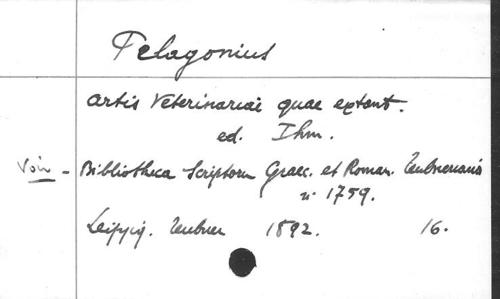 Pelagonius
Artis Veterinariae quae extant.
ed. Ihm.
Voir - Bibliotheca Scriptorum Graec. et Roman. Teubneriana
n° 1759.
Leipzig. Teubner 1892. 16.